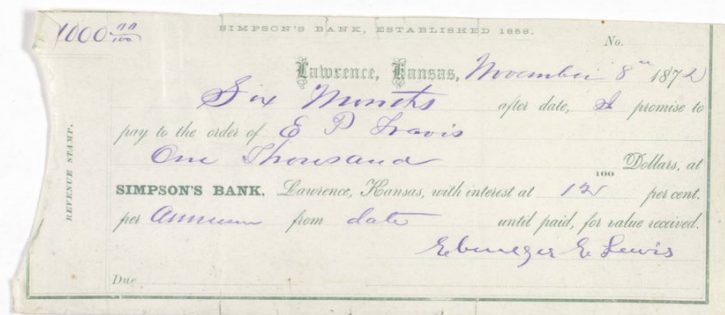 SIMPSON'S BANK, ESTABLISHED 1858.
1000 00/100
No.
Lawrence, Kansas, November 8th 1872
Six Months after date, I promise to
pay to the order of E P Travis
One Thousand 100 Dollars, at
SIMPSON'S BANK. Lawrence, Kansas, with interest at 12 per cent.
per Annum from date until paid, for value received.
Ebenezer E Lewis
Due
REVENUE STAMP.